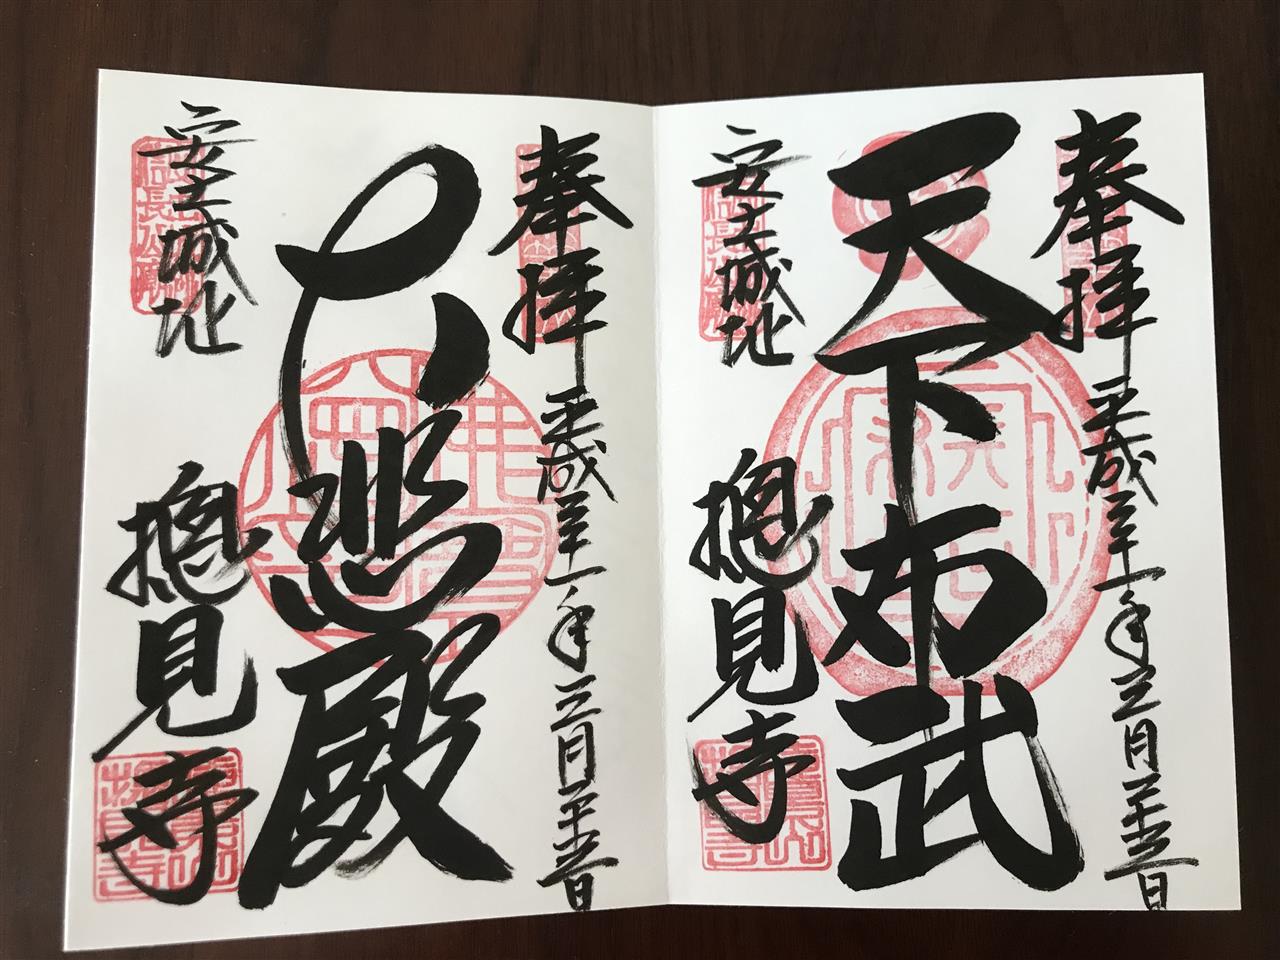 奉拝 平成三十一年三月二十五日
天下布武
安土城址 摠見寺
奉拝 平成三十一年三月二十五日
大悲殿
安土城址 摠見寺
信長公廟